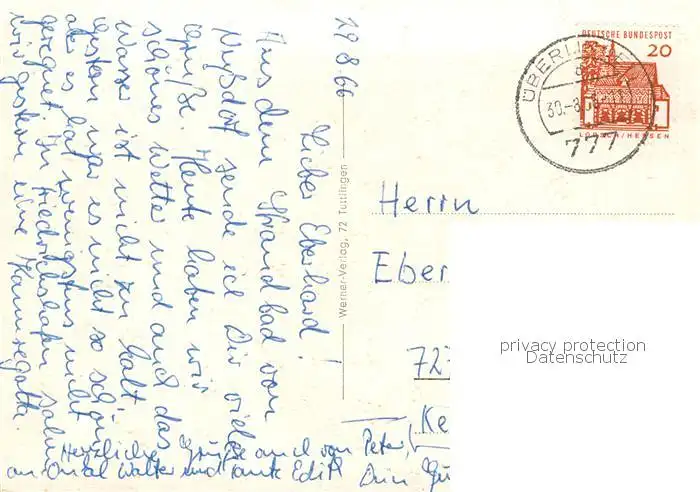 29.8.66
Lieber Eberhard!
Aus dem Strandbad von
Nußdorf sende ich Dir viele
Grüße. Heute haben wir
schönes Wetter und auch das
Wasser ist nicht zu kalt.
Gestern war es nicht so schön
aber es hat wenigstens nicht
geregnet. In Friedrichshafen sahen
wir gestern eine Kanuregatta.
Herzliche Grüße auch von Peter,
an Onkel Walter und Tante Edith Dein
Werner-Verlag, 72 Tuttlingen
DEUTSCHE BUNDESPOST
20
LORSCH/HESSEN
ÜBERLINGEN
30.-8.
777
Herrn
Eber
727
Ke
privacy protection
Datenschutz